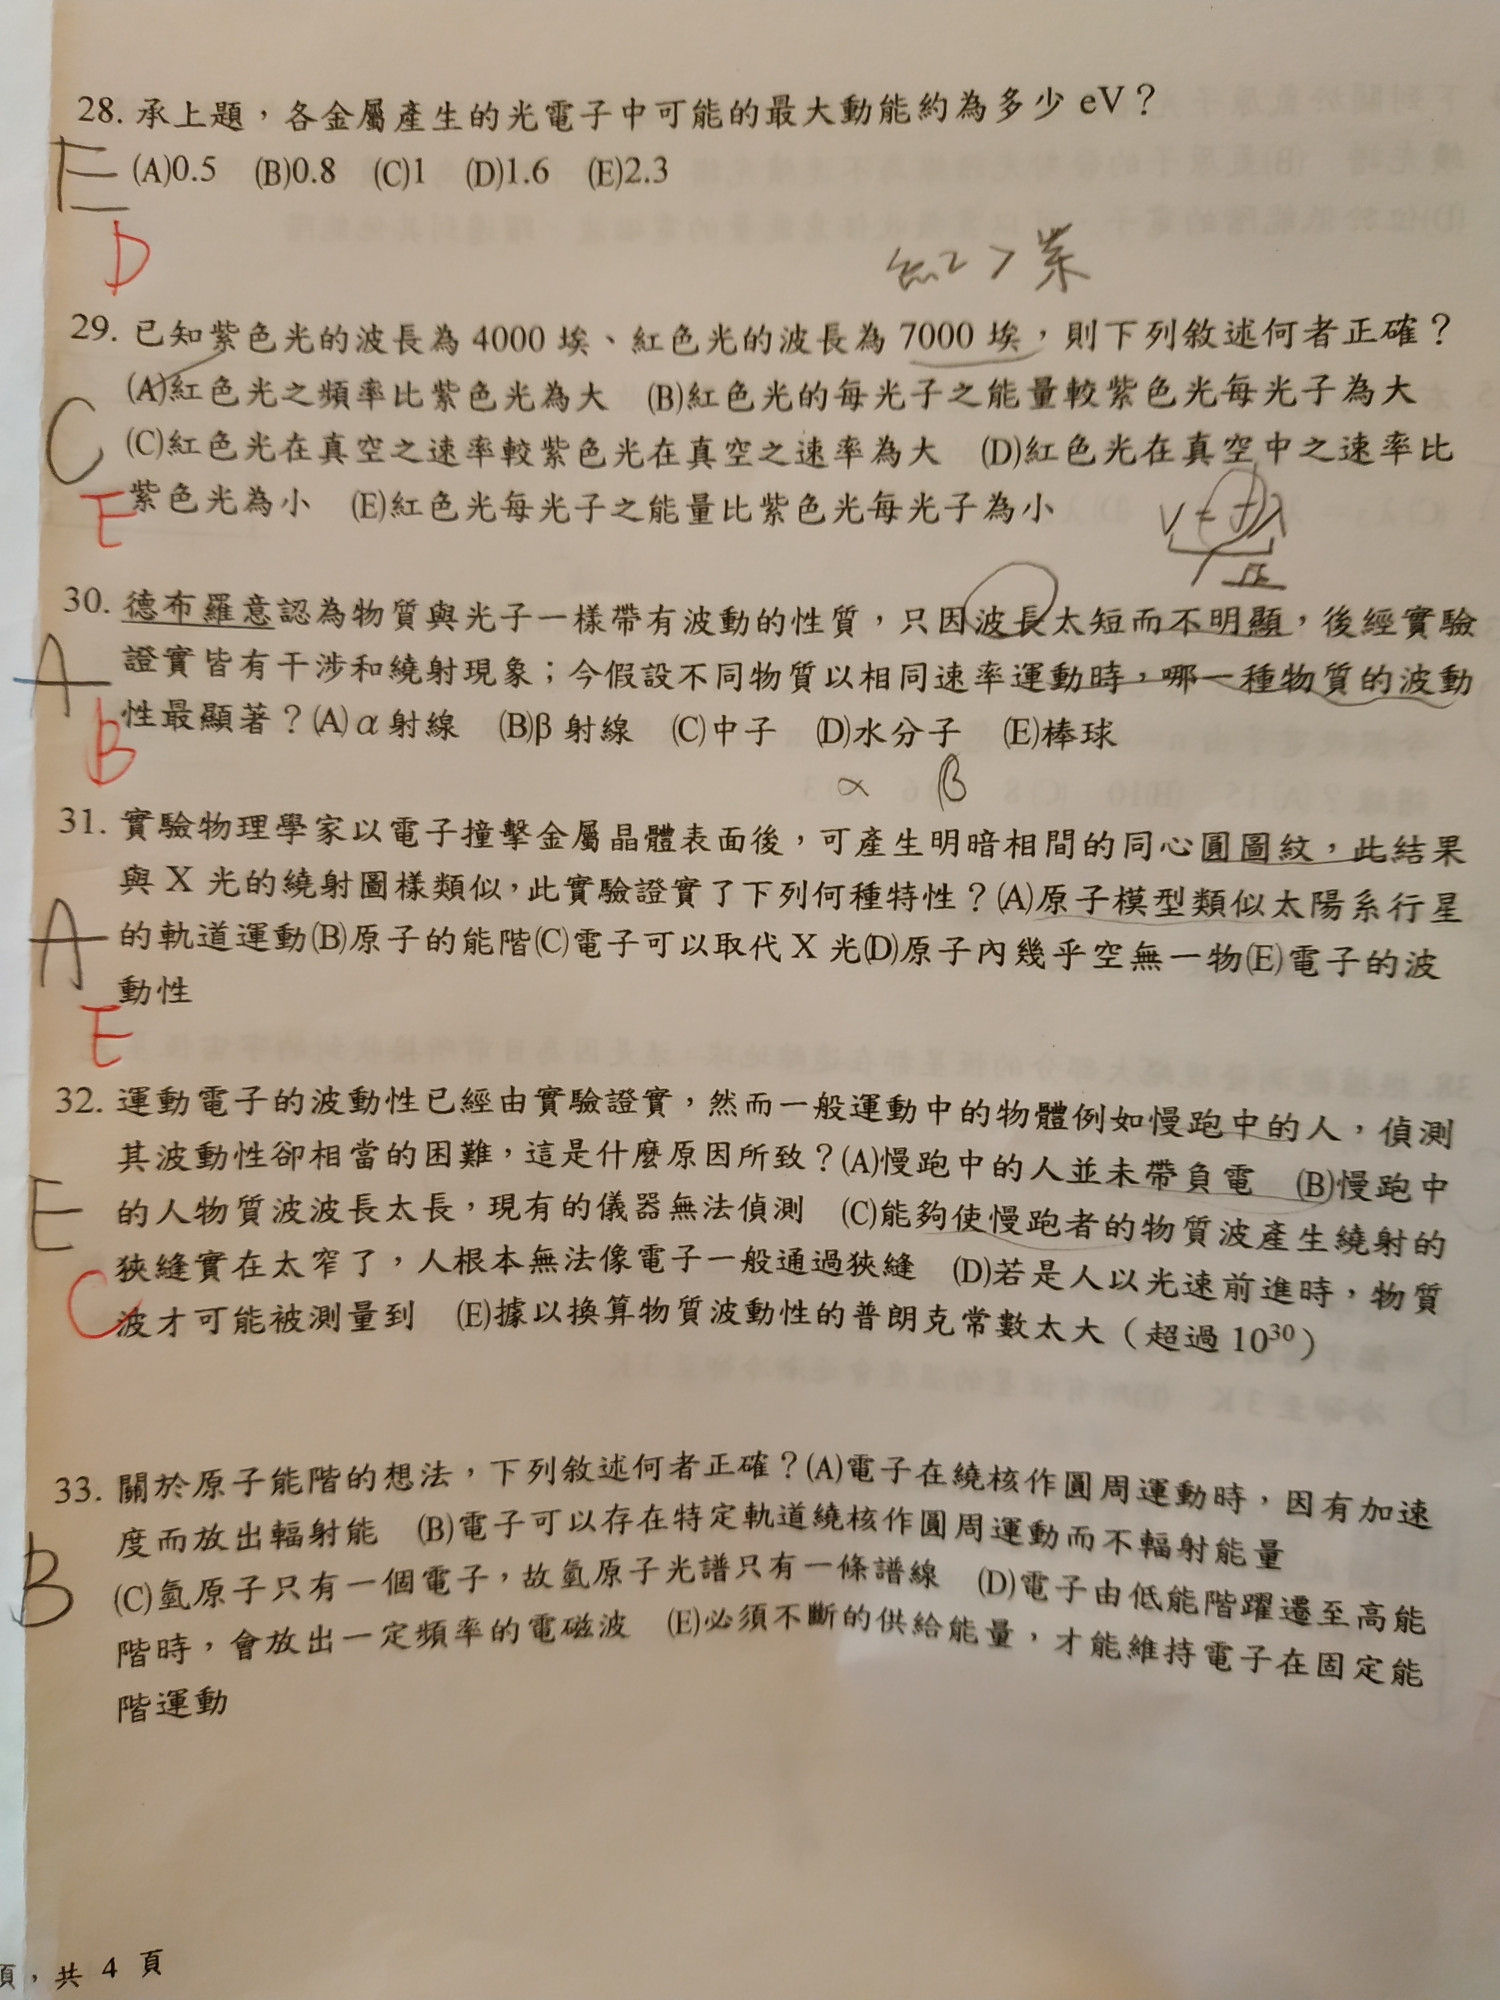 28. 承上題，各金屬產生的光電子中可能的最大動能約為多少 eV？
E (A)0.5 (B)0.8 (C)1 (D)1.6 (E)2.3
D
紅 > 紫
29. 已知紫色光的波長為 4000 埃、紅色光的波長為 7000 埃，則下列敘述何者正確？
(A)紅色光之頻率比紫色光為大 (B)紅色光的每光子之能量較紫色光每光子為大
C (C)紅色光在真空之速率較紫色光在真空之速率為大 (D)紅色光在真空中之速率比
E 紫色光為小 (E)紅色光每光子之能量比紫色光每光子為小
V = fλ
30. 德布羅意認為物質與光子一樣帶有波動的性質，只因波長太短而不明顯，後經實驗
A 證實皆有干涉和繞射現象；今假設不同物質以相同速率運動時，哪一種物質的波動
B 性最顯著？(A)α射線 (B)β射線 (C)中子 (D)水分子 (E)棒球
α β
31. 實驗物理學家以電子撞擊金屬晶體表面後，可產生明暗相間的同心圓圖紋，此結果
與 X 光的繞射圖樣類似，此實驗證實了下列何種特性？(A)原子模型類似太陽系行星
A 的軌道運動(B)原子的能階(C)電子可以取代 X 光(D)原子內幾乎空無一物(E)電子的波
動性
E
32. 運動電子的波動性已經由實驗證實，然而一般運動中的物體例如慢跑中的人，偵測
其波動性卻相當的困難，這是什麼原因所致？(A)慢跑中的人並未帶負電 (B)慢跑中
E 的人物質波波長太長，現有的儀器無法偵測 (C)能夠使慢跑者的物質波產生繞射的
狹縫實在太窄了，人根本無法像電子一般通過狹縫 (D)若是人以光速前進時，物質
C 波才可能被測量到 (E)據以換算物質波動性的普朗克常數太大（超過 10³⁰）
33. 關於原子能階的想法，下列敘述何者正確？(A)電子在繞核作圓周運動時，因有加速
度而放出輻射能 (B)電子可以存在特定軌道繞核作圓周運動而不輻射能量
B (C)氫原子只有一個電子，故氫原子光譜只有一條譜線 (D)電子由低能階躍遷至高能
階時，會放出一定頻率的電磁波 (E)必須不斷的供給能量，才能維持電子在固定能
階運動
頁，共 4 頁